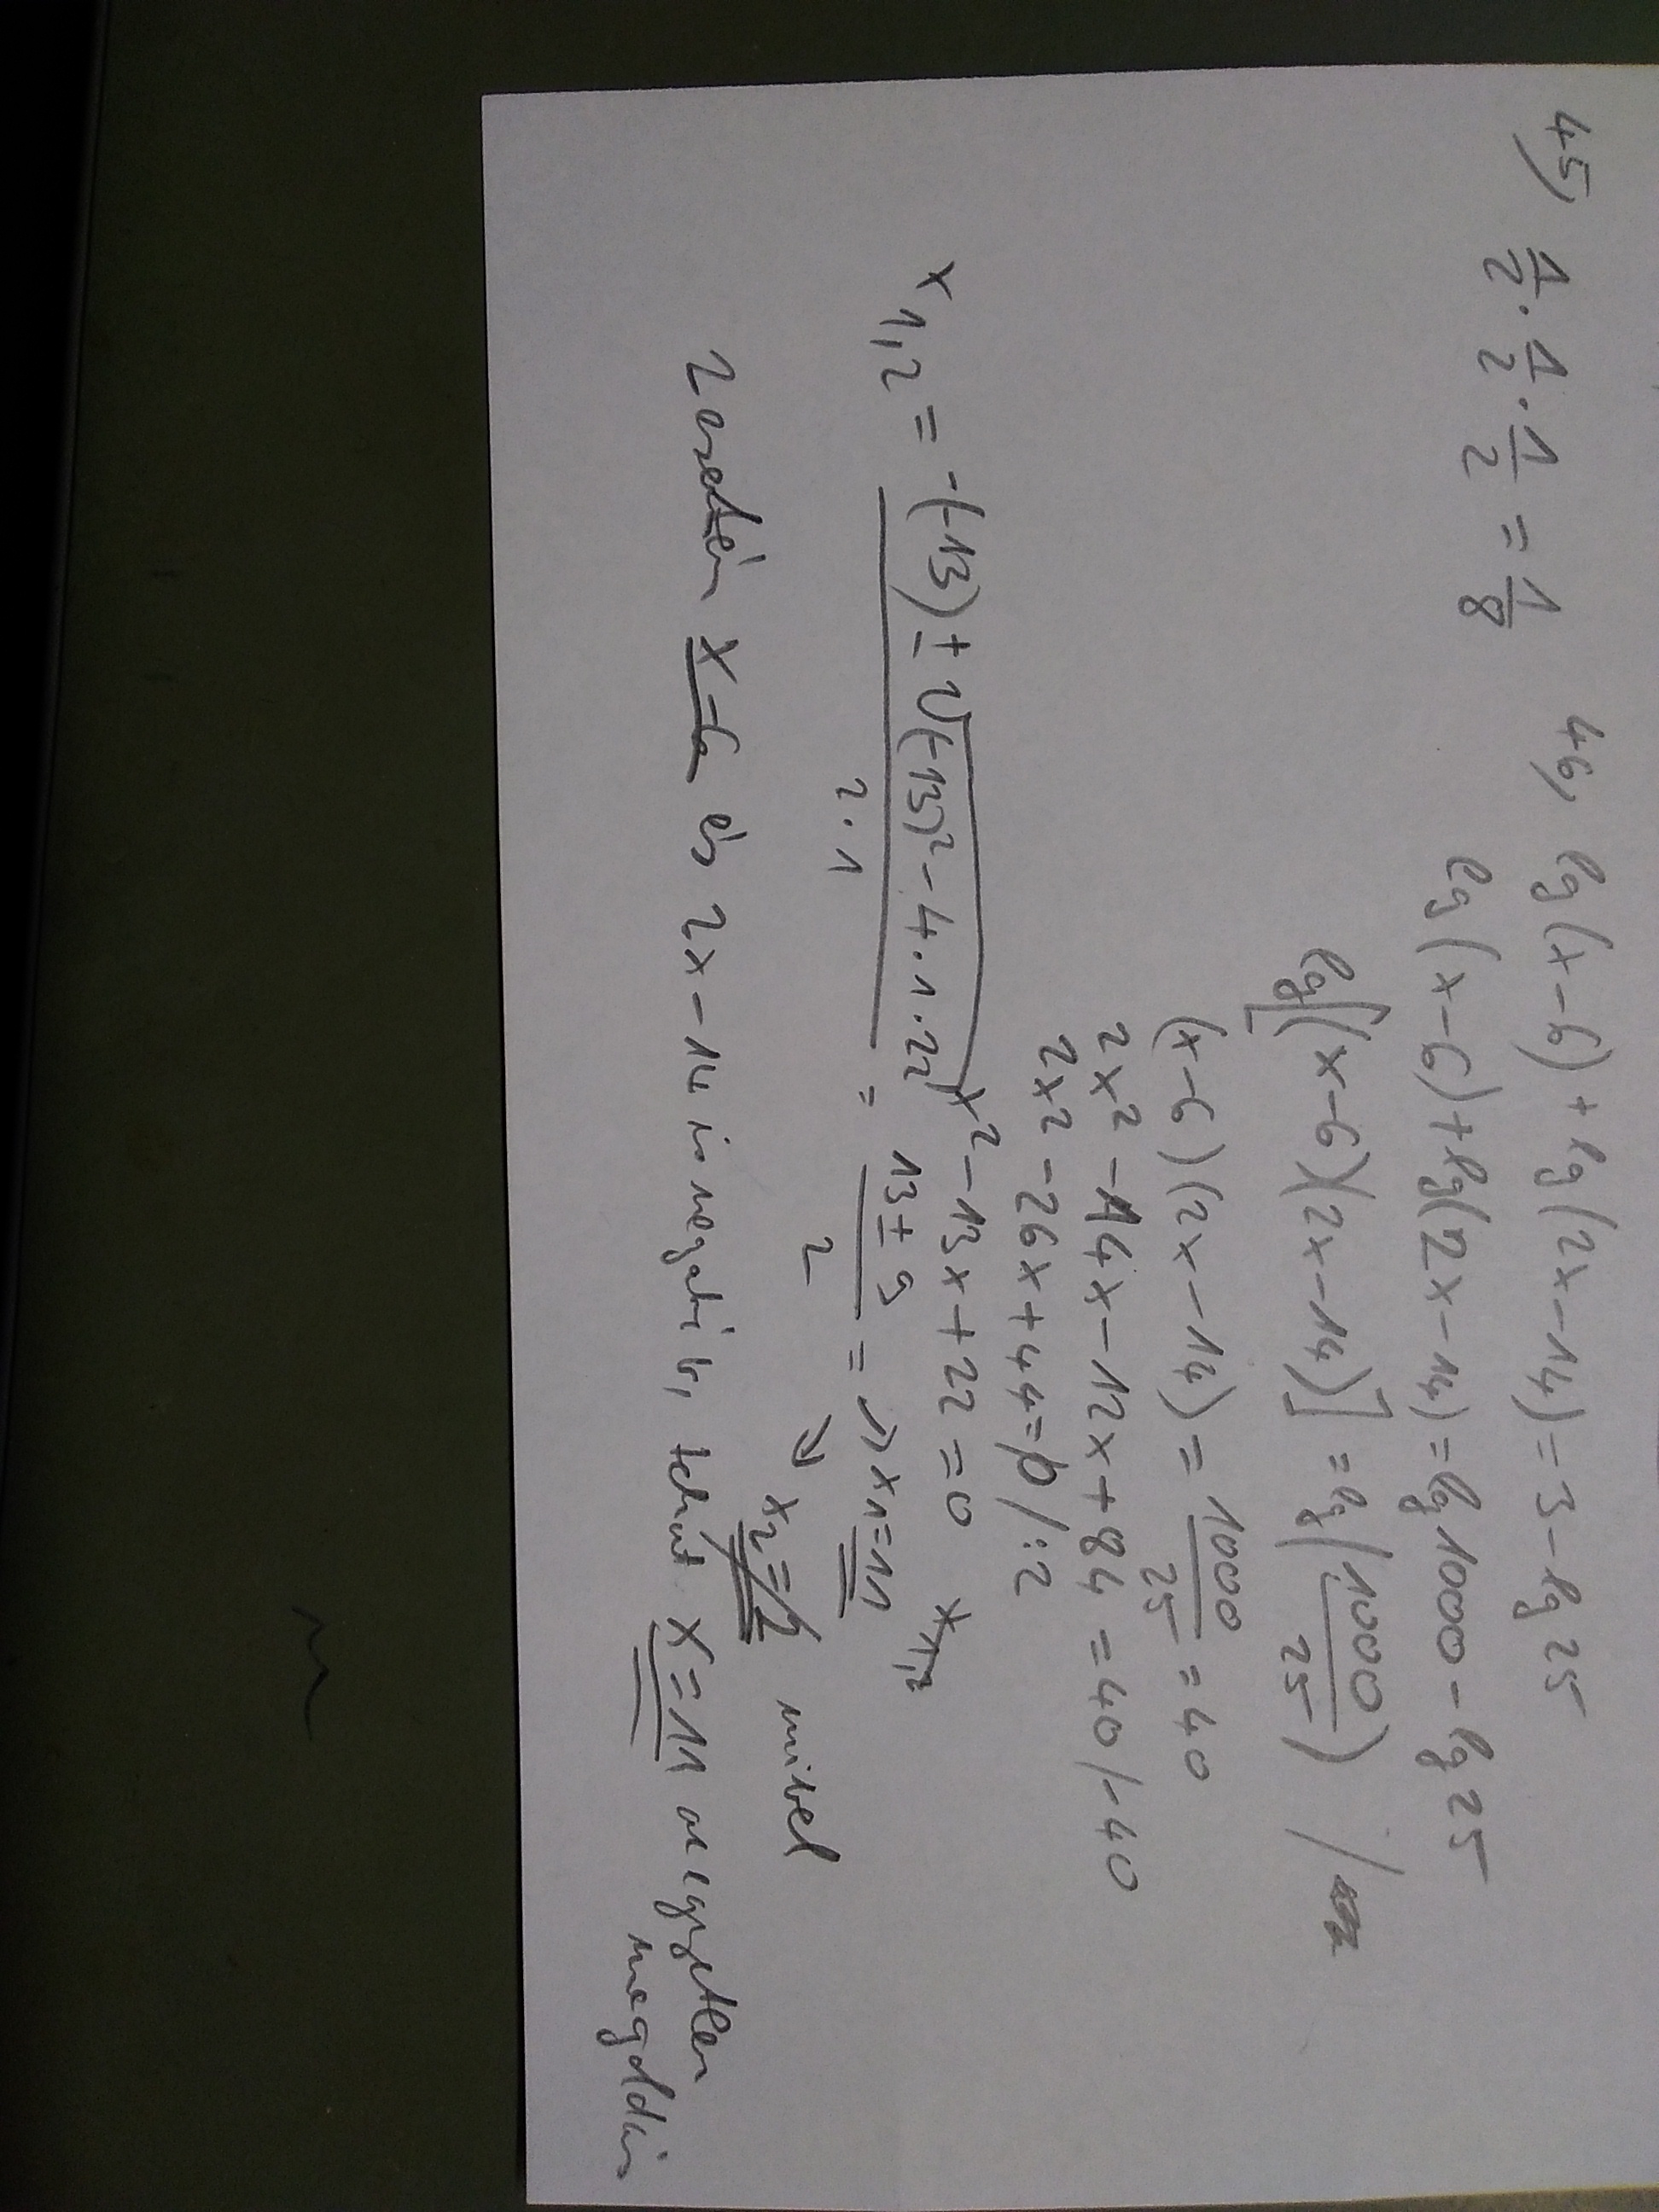 45, 1/2 · 1/2 · 1/2 = 1/8
46, lg(x-6) + lg(2x-14) = 3 - lg 25
lg(x-6) + lg(2x-14) = lg 1000 - lg 25
lg[(x-6)(2x-14)] = lg(1000/25) /
(x-6)(2x-14) = 1000/25 = 40
2x² - 14x - 12x + 84 = 40 /-40
2x² - 26x + 44 = 0 /:2
x² - 13x + 22 = 0
x1,2 = (-(-13) ± √((-13)² - 4·1·22)) / (2·1) = (13 ± 9) / 2 = x1 = 11
x2 = 2 mivel
2 esetén x-6 és 2x-14 is negatív, tehát x = 11 az egyetlen
megoldás